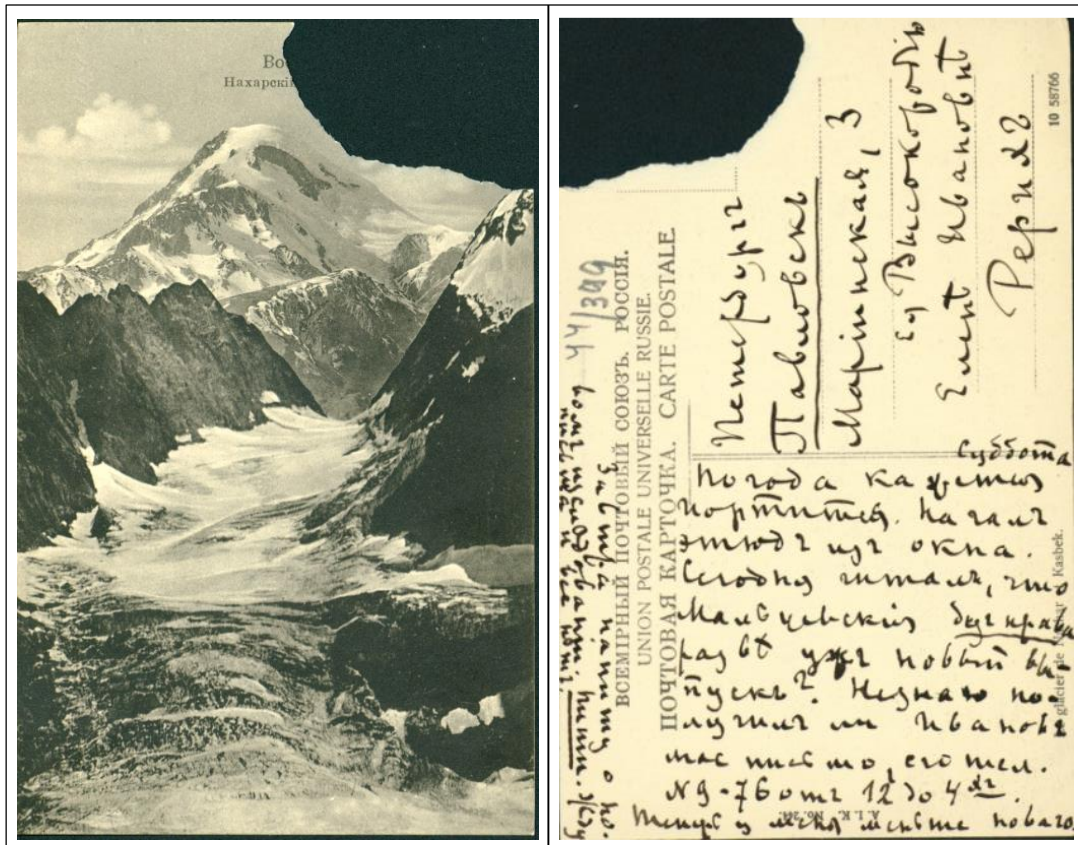 Во
Нахарскій
ВСЕМІРНЫЙ ПОЧТОВЫЙ СОЮЗЪ. РОССІЯ.
UNION POSTALE UNIVERSELLE RUSSIE.
ПОЧТОВАЯ КАРТОЧКА. CARTE POSTALE.
44/399
Петербургъ
Павловскъ
Маріинская, 3
Ея Высокородію
Еленѣ Ивановнѣ
Рерихъ
10 58766
Суббота
Погода кажется
портится. Началъ
этюдъ изъ окна.
Сегодня читалъ, что
Мальцевскія безъ права
развѣ ужъ новый вы-
пускъ? Незнаю по-
лучилъ ли Ивановъ
мое письмо, его тел.
№ 9-76 отъ 12 до 4
Теперь у меня меньше
завтра напишу о
пиши.
glacier de Kasbek.
A. I. K. No.